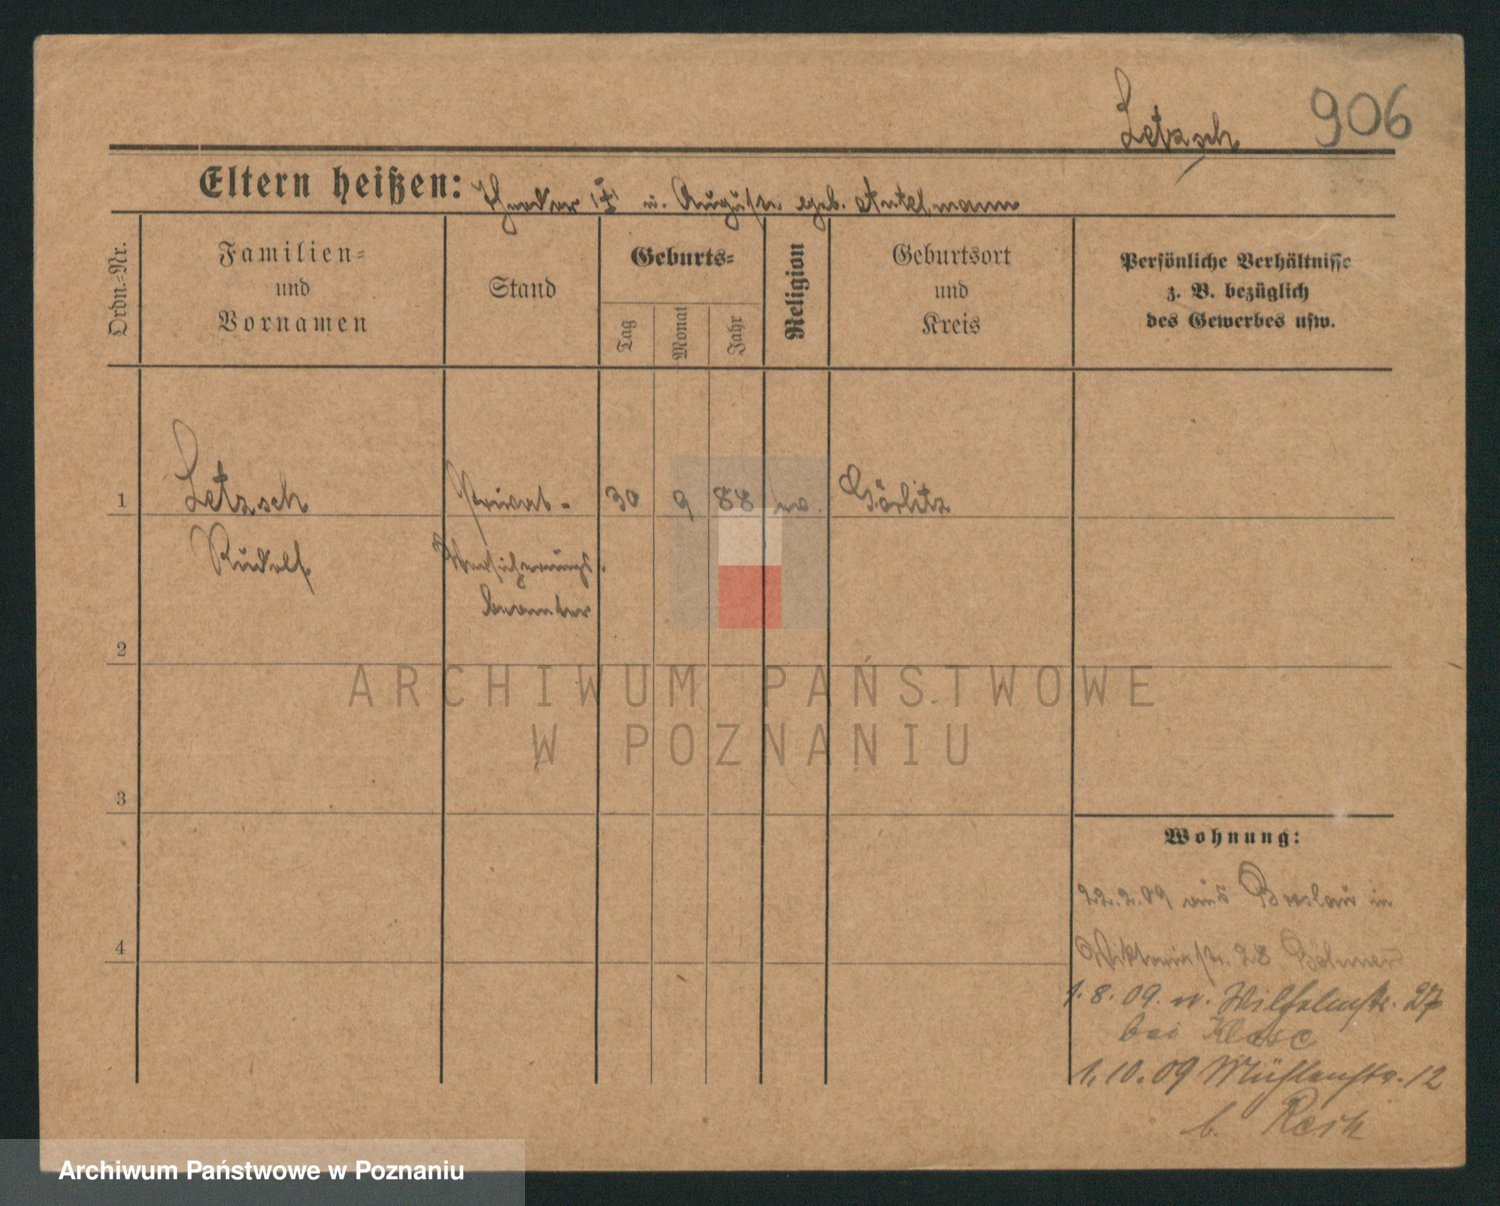 Letzsch 906
Eltern heißen: Theodor (†) u. Auguste geb. Antelmann
Ordn.-Nr.
Familien-
und
Vornamen
Stand
Geburts-
Tag
Monat
Jahr
Religion
Geburtsort
und
Kreis
Persönliche Verhältnisse
z. B. bezüglich
des Gewerbes usw.
1 Letzsch Privat- 30 9 88 ev. Görlitz
Rudolf Versicherungs-
beamter
2
3
4
Wohnung:
22.2.09 aus Breslau in
Viktoriastr. 28 Böhmer
1.8.09. n. Wilhelmstr. 27
bei Klose
1.10.09 Mühlenstr. 12
b.
ARCHIWUM PAŃSTWOWE
W POZNANIU
Archiwum Państwowe w Poznaniu